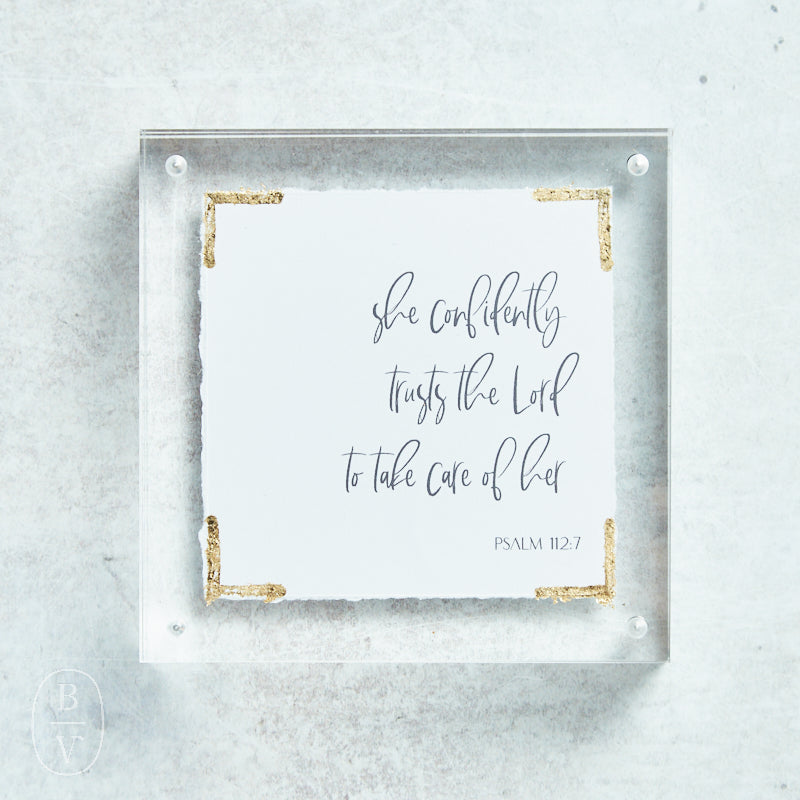 she confidently
trusts the Lord
to take care of her
PSALM 112:7
B
V